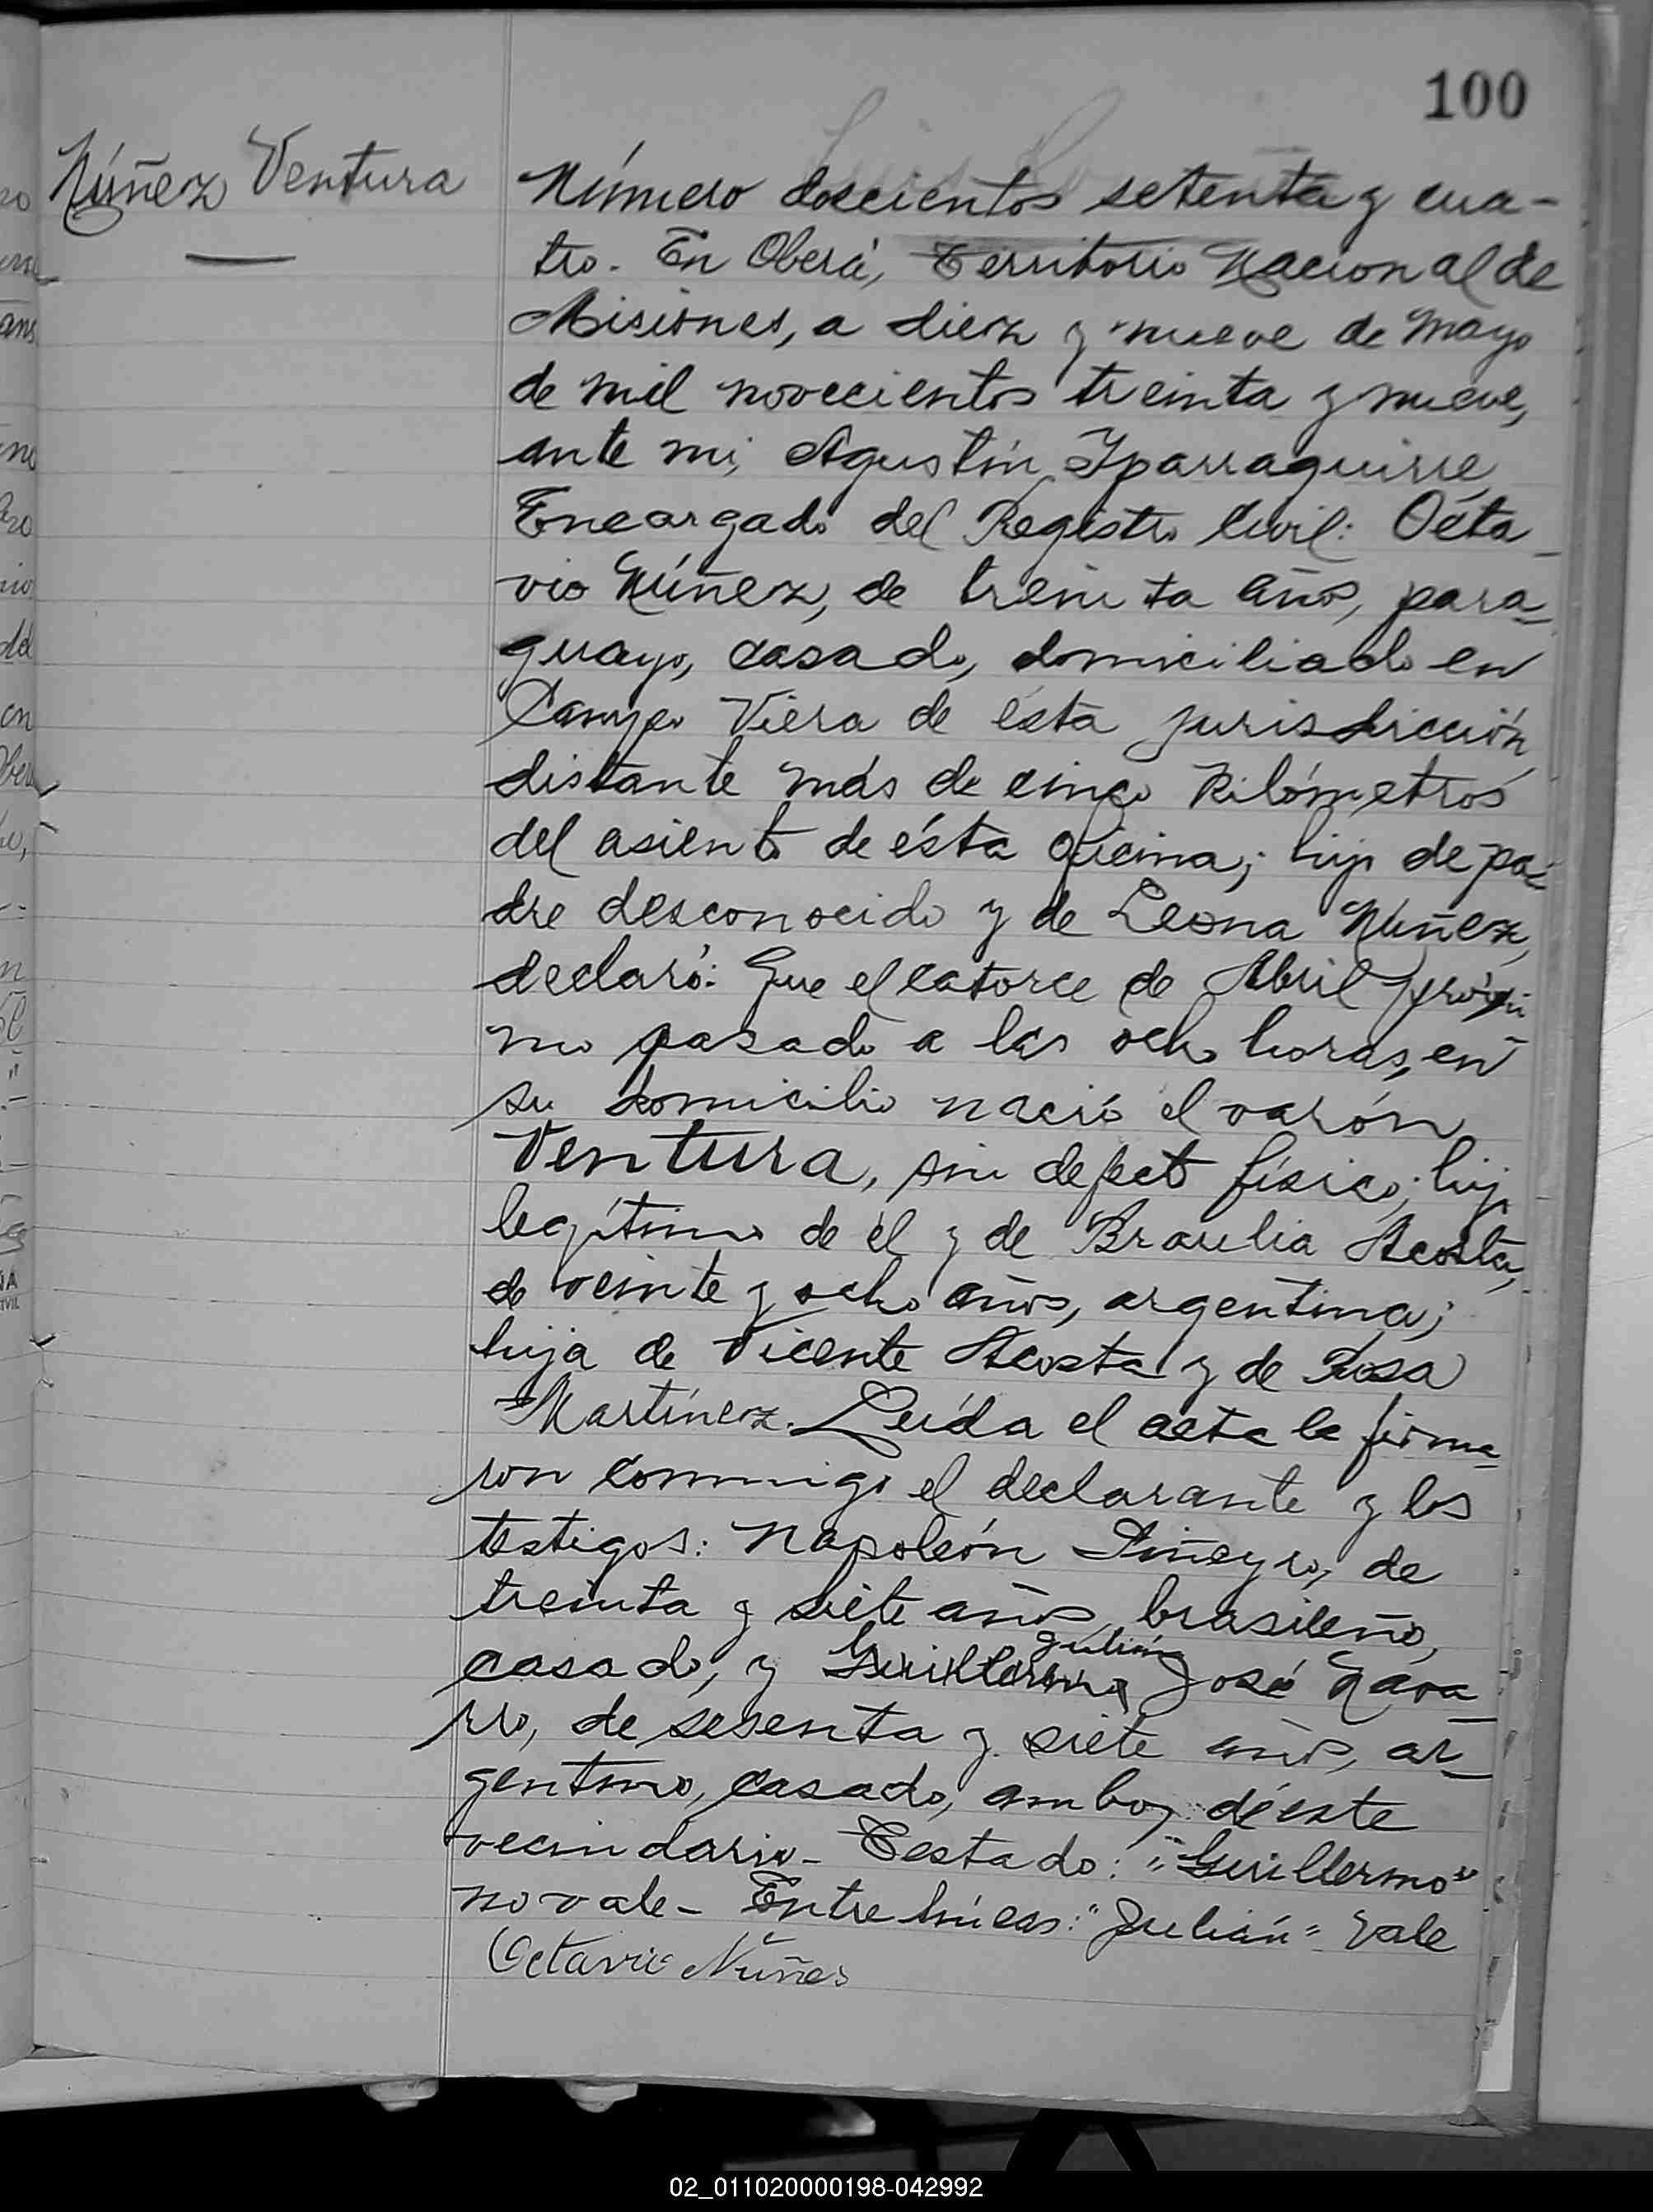 100
Núñez Ventura
Número doscientos setenta y cua-
tro. En Oberá, Territorio Nacional de
Misiones, a diez y nueve de Mayo
de mil novecientos treinta y nueve,
ante mi, Agustín Yparraguirre,
Encargado del Registro Civil: Octa-
vio Núñez, de treinta años, para-
guayo, casado, domiciliado en
Campo Viera de ésta jurisdicción
distante más de cinco kilómetros
del asiento de ésta oficina; hijo de pa-
dre desconocido y de Leona Núñez,
declaró: Que el catorce de Abril próxi-
mo pasado a las ocho horas, en
su domicilio nació el varón
Ventura, sin defecto físico; hijo
legítimo de él y de Braulia Acosta,
de veinte y ocho años, argentina;
hija de Vicente Acosta y de Rosa
Martínez. Leída el acta la firma-
ron conmigo el declarante y los
testigos: Napoleón Piñeyro, de
treinta y siete años, brasileño,
Julián
casado, y Guillermo José Nava-
rro, de sesenta y siete años, ar-
gentino, casado, ambos de éste
vecindario- Testado: "Guillermo"
no vale- Entre líneas: "Julián" Vale
Octavio Núñes
02_011020000198-042992